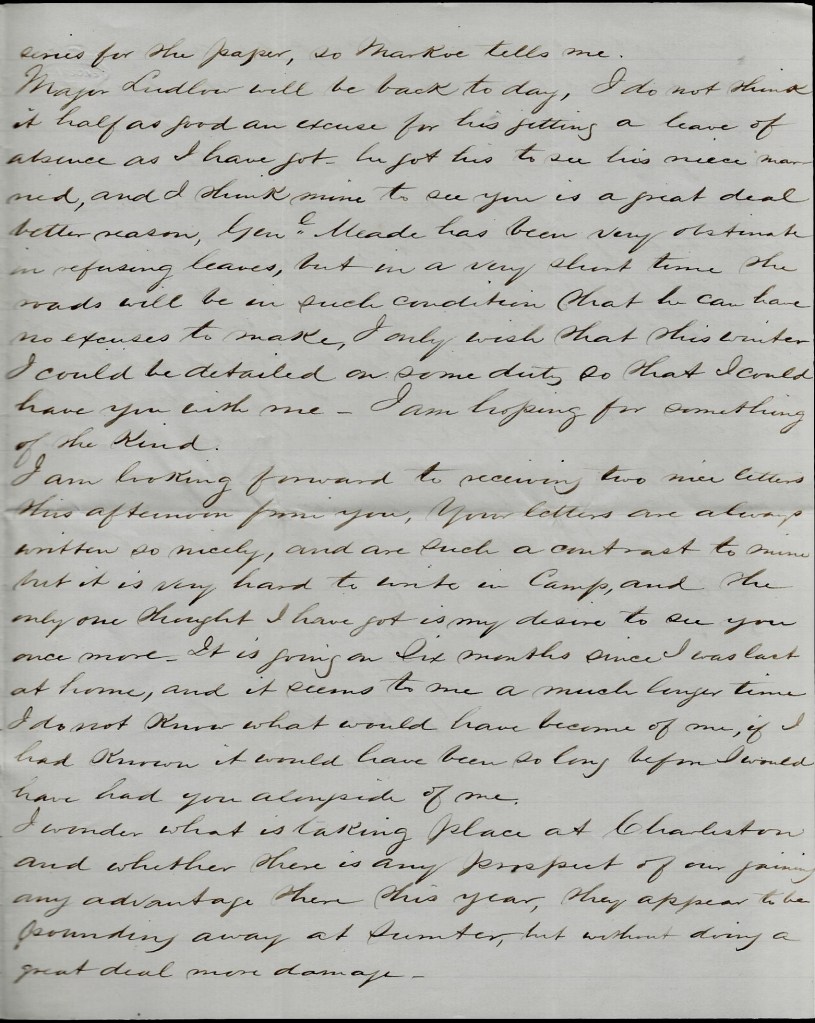 series for the paper, so Markoe tells me.
Major Ludlow will be back to day, I do not think
it half as good an excuse for his getting a leave of
absence as I have got - he got his to see his niece mar
ried, and I think mine to see you is a great deal
better reason, Genl. Meade has been very obstinate
in refusing leaves, but in a very short time the
roads will be in such condition that he can have
no excuses to make, I only wish that this winter
I could be detailed on some duty so that I could
have you with me - I am hoping for something
of the kind.
I am looking forward to receiving two nice letters
this afternoon from you, Your letters are always
written so nicely, and are such a contrast to mine
but it is very hard to write in Camp, and the
only one thought I have got is my desire to see you
once more - It is going on Six months since I was last
at home, and it seems to me a much longer time
I do not know what would have become of me, if I
had known it would have been so long before I would
have had you alongside of me.
I wonder what is taking place at Charleston
and whether there is any prospect of our gaining
any advantage there this year, they appear to be
pounding away at Sumter, but without doing a
great deal more damage -